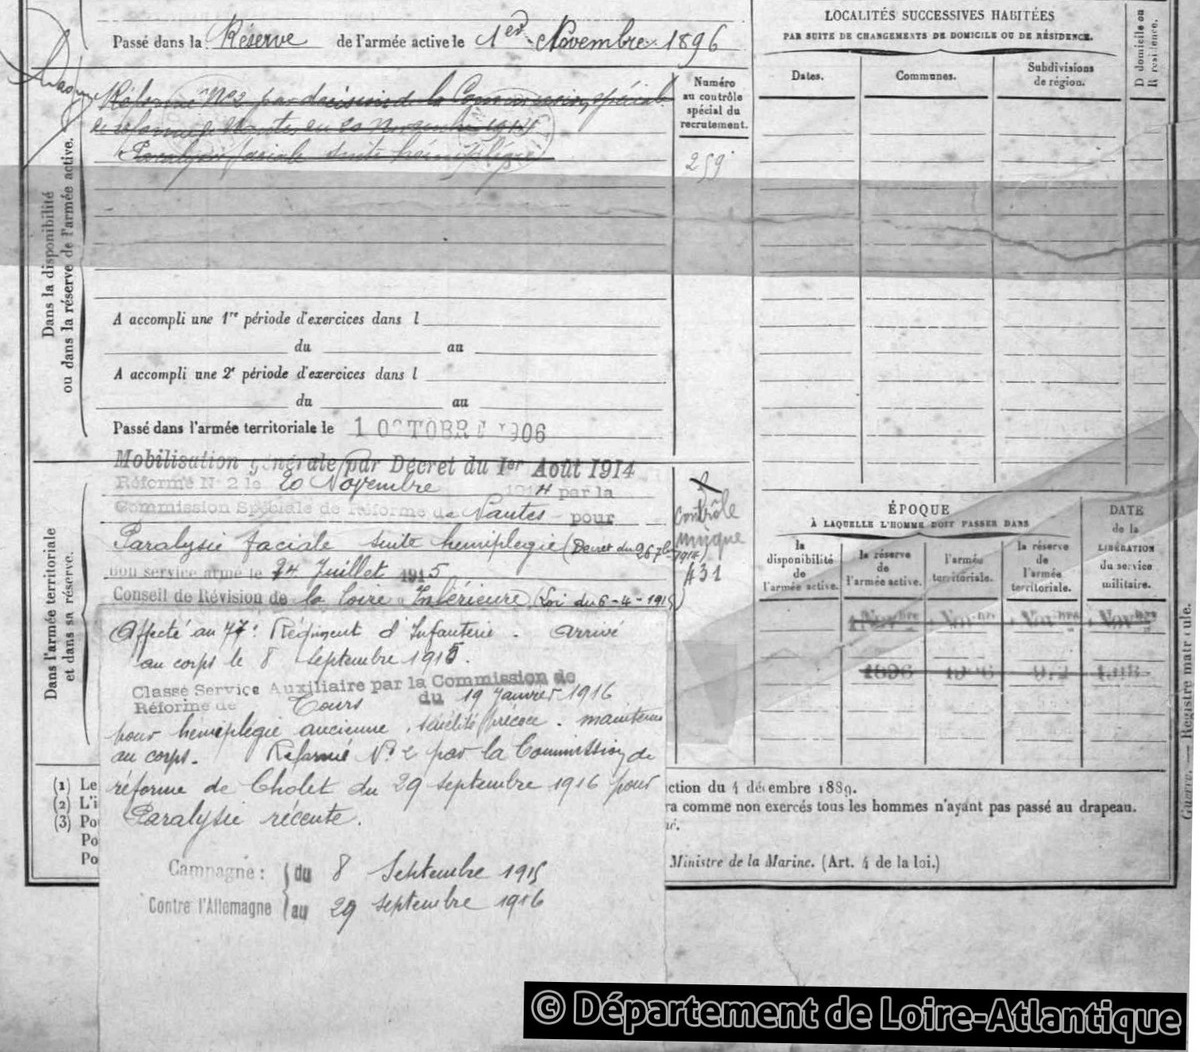 Passé dans la Réserve de l'armée active le 1er Novembre 1896
Réformé N°2 par décision de la Commission spéciale
de réforme de Nantes du 20 Novembre 1914
Paralysie faciale suite hémiplégie
Numéro
au contrôle
spécial du
recrutement.
259
Dans la disponibilité
ou dans la réserve de l'armée active.
A accompli une 1re période d'exercices dans l
du au
A accompli une 2e période d'exercices dans l
du au
Passé dans l'armée territoriale le 1 OCTOBRE 1906
Dans l'armée territoriale
et dans sa réserve.
Mobilisation générale par Décret du 1er Août 1914
Réformé N° 2 le 20 Novembre 1914 par la
Commission Spéciale de Réforme de Nantes pour
Paralysie faciale suite hémiplégie (Décret du 26 7bre 1914)
bon service armé le 24 Juillet 1915
Conseil de Révision de la Loire Inférieure (Loi du 6-4-1915)
Contrôle
unique
431
Affecté au 77e Régiment d'Infanterie. Arrivé
au corps le 8 Septembre 1915.
Classé Service Auxiliaire par la Commission de
Réforme de Tours du 19 Janvier 1916
pour hémiplégie ancienne, sénilité précoce. maintenu
au corps. Réformé N° 2 par la Commission de
réforme de Cholet du 29 septembre 1916 pour
Paralysie récente.
Campagne : du 8 Septembre 1915
Contre l'Allemagne au 29 septembre 1916
LOCALITÉS SUCCESSIVES HABITÉES
PAR SUITE DE CHANGEMENTS DE DOMICILE OU DE RÉSIDENCE.
Dates. Communes. Subdivisions
de région.
D domicile ou
R résidence.
ÉPOQUE
À LAQUELLE L'HOMME DOIT PASSER DANS
la
disponibilité
de
l'armée active.
la réserve
de
l'armée active.
l'armée
territoriale.
la réserve
de
l'armée
territoriale.
DATE
de la
LIBÉRATION
du service
militaire.
1 Novbre Novbre Novbre Novbre
1896 1906
(1) Le
(2) L'i
(3) Pou
Po
Po
ction du 4 décembre 1889.
ra comme non exercés tous les hommes n'ayant pas passé au drapeau.
né.
Ministre de la Marine. (Art. 4 de la loi.)
Guerre. — Registre matricule.
© Département de Loire-Atlantique